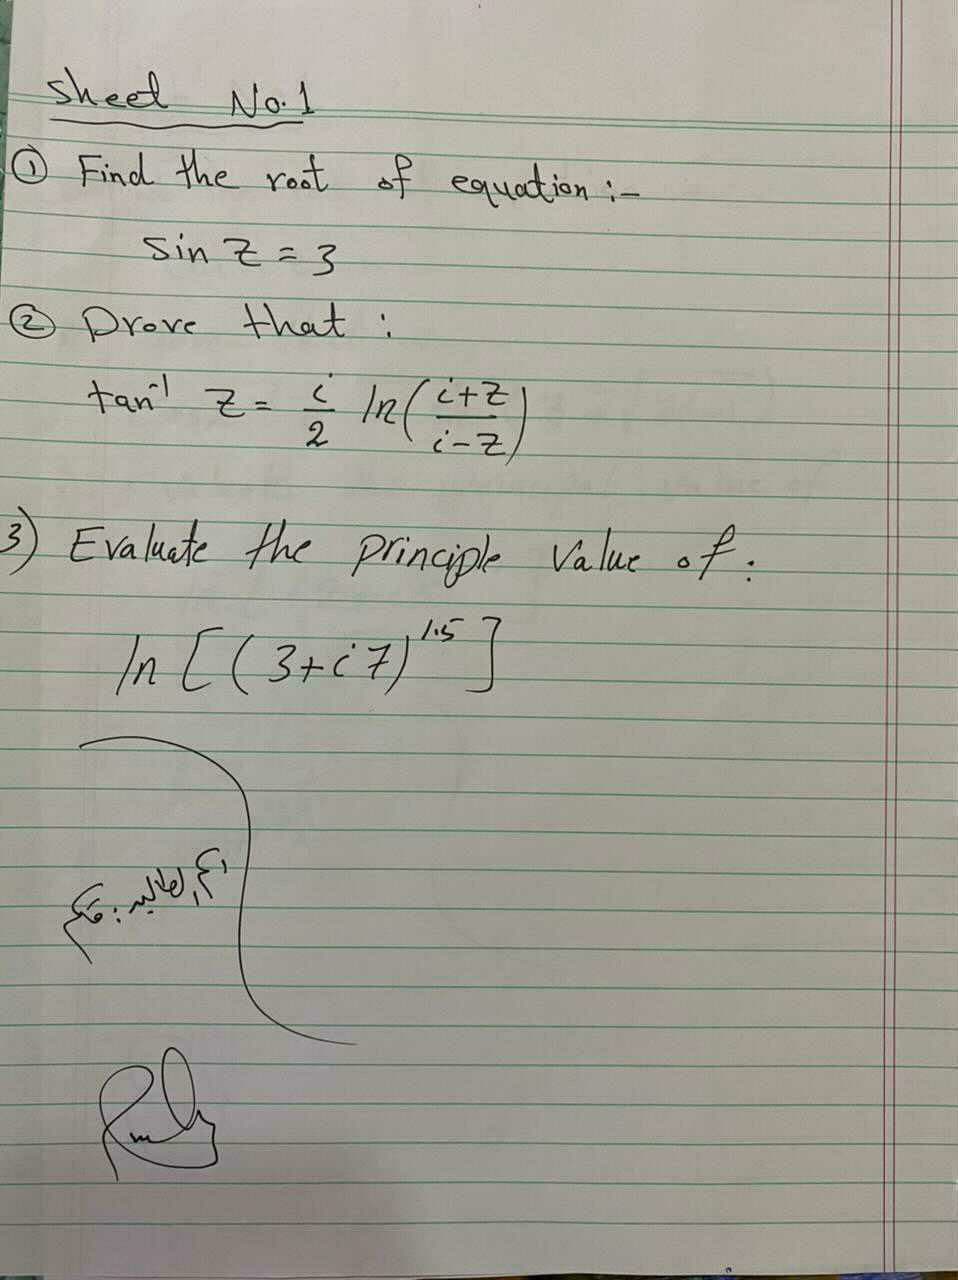 Sheet No.1
① Find the root of equation :-
Sin Z = 3
② Prove that :
tan⁻¹ Z = i/2 ln((i+Z)/(i-Z))
3) Evaluate the principle Value of :
ln [(3+i7)^1.5]